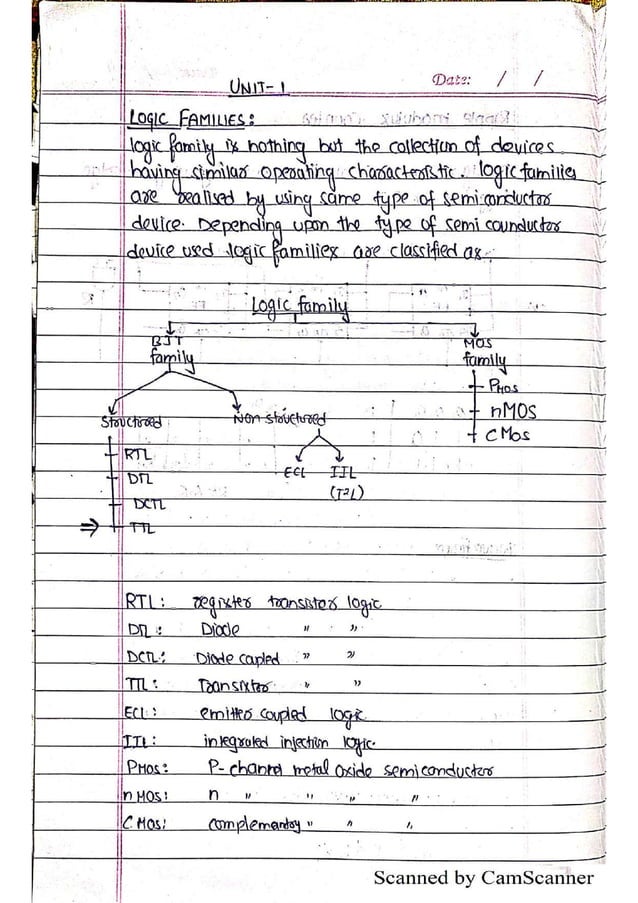 UNIT-1
Date: / /
LOGIC FAMILIES:
logic family is nothing but the collection of devices
having similar operating characteristic. logic families
are realised by using same type of semiconductor
device. Depending upon the type of semi counductor
device used logic families are classified as:
Logic family
BJT family
MOS family
Structured
Non structured
RTL
DTL
DCTL
⇒ TTL
ECL
IIL
(I²L)
PMos
nMOS
CMos
RTL: register transistor logic
DTL: Diode " "
DCTL: Diode capled " "
TTL: Transistor " "
ECL: emitter coupled logic
IIL: integrated injection logic.
PMos: P-channel metal oxide semiconductor
nMOS: n " " " "
CMos: complementary " " "
Scanned by CamScanner